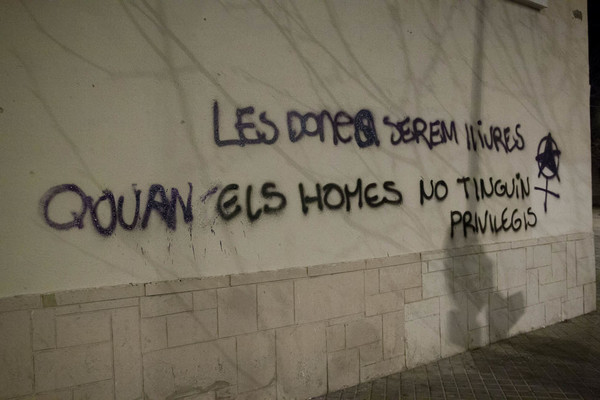 LES DONES SEREM lliURES
QOUAN ELS HOMES NO TINGUIN
PRIVILEGIS